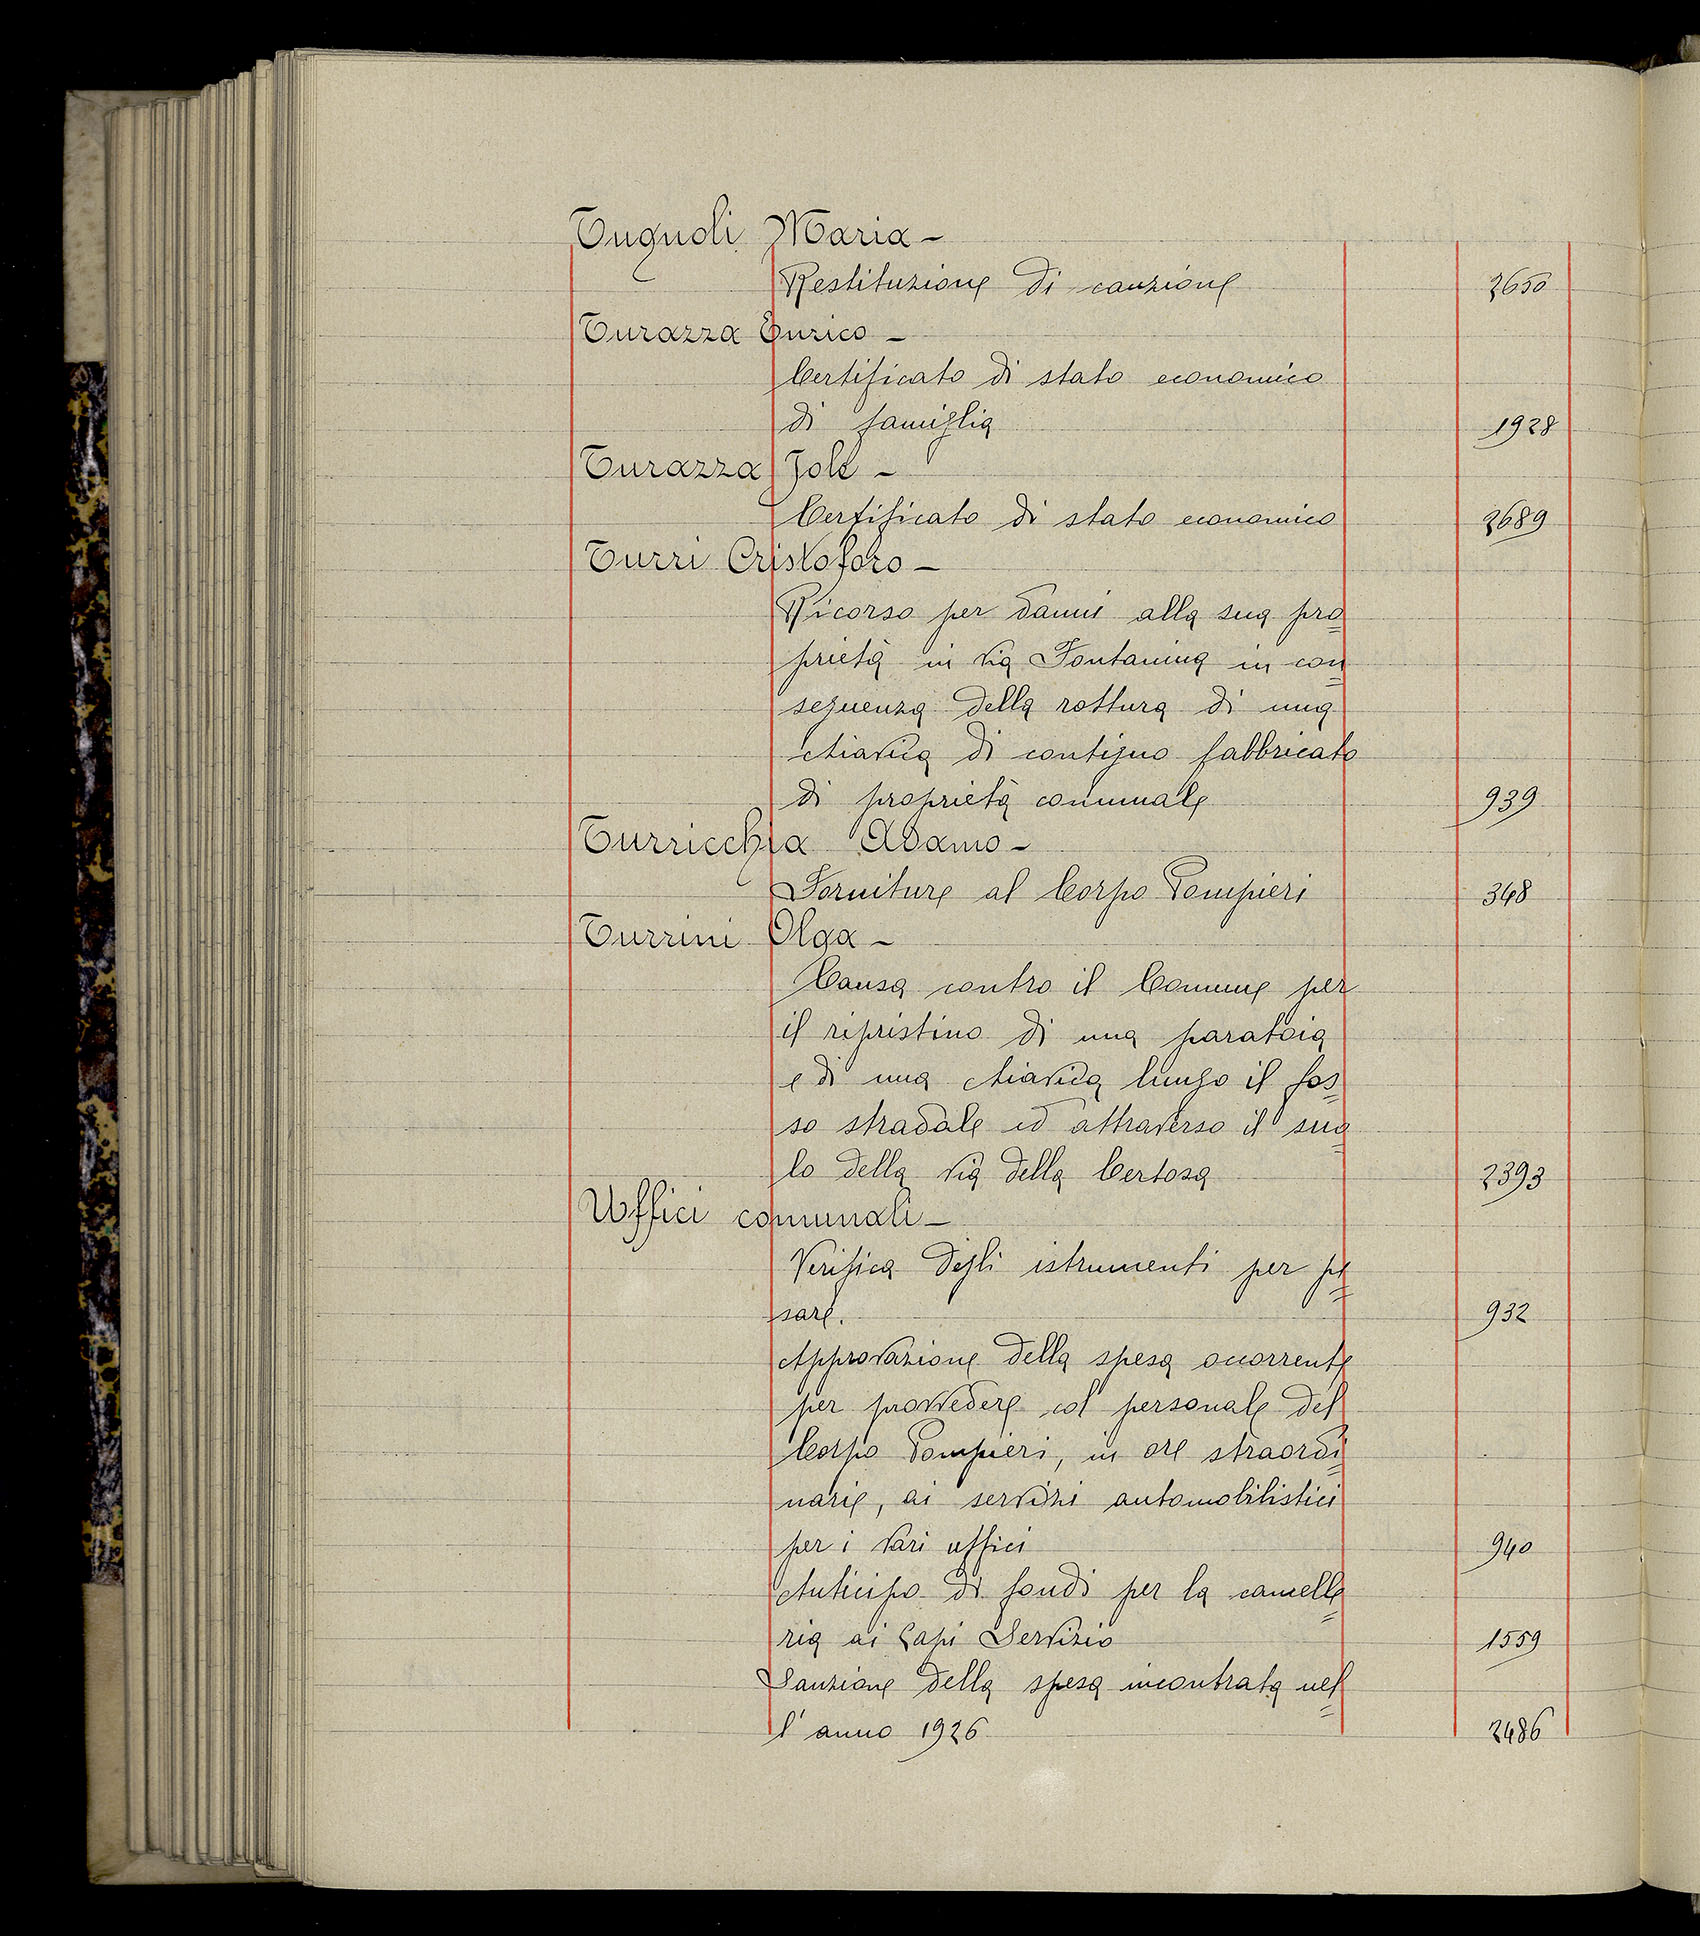 Tugnoli Maria -
Restituzione di cauzione 2650
Turazza Enrico -
Certificato di stato economico
di famiglia 1928
Turazza Jole -
Certificato di stato economico 2689
Turri Cristoforo -
Ricorso per danni alla sua pro=
prietà in via Fontanina in con=
seguenza della rottura di una
chiavica di contiguo fabbricato
di proprietà comunale 939
Turricchia Adamo -
Forniture al Corpo Pompieri 348
Turrini Olga -
Causa contro il Comune per
il ripristino di una paratoia
e di una chiavica lungo il fos=
so stradale ed attraverso il suo=
lo della via della Certosa 2393
Uffici comunali -
Verifica degli istrumenti per pe=
sare. 932
Approvazione della spesa occorrente
per provvedere col personale del
Corpo Pompieri, in ore straordi=
narie, ai servizi automobilistici
per i vari uffici 940
Anticipo di fondi per la cancelle=
ria ai Capi Servizio 1559
Sanzione della spesa incontrata nel=
l'anno 1926 2486